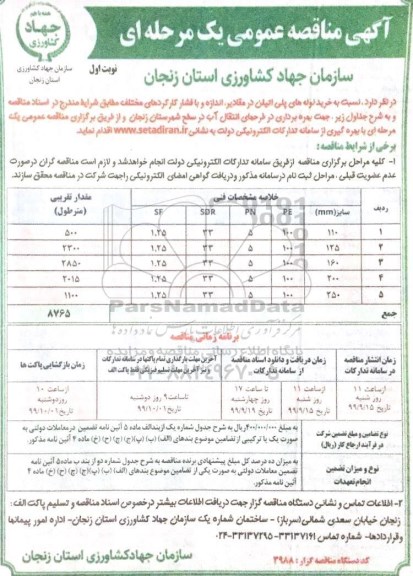 همه با هم
جهاد
کشاورزی
سازمان جهاد کشاورزی
استان زنجان
آگهی مناقصه عمومی یک مرحله ای
نوبت اول
سازمان جهاد کشاورزی استان زنجان
در نظر دارد، نسبت به خرید لوله های پلی اتیلن در مقادیر، اندازه و با فشار کارکردهای مختلف مطابق شرایط مندرج در اسناد مناقصه
و به شرح جداول زیر، جهت بهره برداری در طرحهای انتقال آب در سطح شهرستان زنجان و از طریق برگزاری مناقصه عمومی یک
مرحله ای با بهره گیری از سامانه تدارکات الکترونیکی دولت به نشانی www.setadiran.ir اقدام نماید.
برخی از شرایط مناقصه:
۱- کلیه مراحل برگزاری مناقصه از طریق سامانه تدارکات الکترونیکی دولت انجام خواهد شد و لازم است مناقصه گران درصورت
عدم عضویت قبلی، مراحل ثبت نام در سامانه مذکور و دریافت گواهی امضای الکترونیکی را جهت شرکت در مناقصه محقق سازند.
ردیف خلاصه مشخصات فنی مقدار تقریبی (مترطول)
سایز(mm) PE PN SDR SF
۱ ۱۱۰ ۱۰۰ ۵ ۳۳ ۱.۲۵ ۵۰۰
۲ ۱۲۵ ۱۰۰ ۵ ۳۳ ۱.۲۵ ۲۳۰۰
۳ ۱۶۰ ۱۰۰ ۵ ۳۳ ۱.۲۵ ۲۸۵۰
۴ ۲۰۰ ۱۰۰ ۵ ۳۳ ۱.۲۵ ۲۰۱۵
۵ ۲۵۰ ۱۰۰ ۵ ۳۳ ۱.۲۵ ۱۱۰۰
جمع ۸۷۶۵
ParsNamadData
برنامه زمانی مناقصه
زمان انتشار مناقصه در سامانه تدارکات
زمان دریافت و دانلود اسناد مناقصه از سامانه تدارکات
آخرین مهلت بارگذاری تمام پاکتها در سامانه تدارکات و نیز آخرین مهلت تسلیم فیزیکی فقط پاکت الف
زمان بازگشایی پاکت ها
ساعت ۱۱ روز شنبه تاریخ ۹۹/۹/۱۵
از ساعت ۱۱ روز شنبه تاریخ ۹۹/۹/۱۵
تا ساعت ۱۷ روز چهارشنبه تاریخ ۹۹/۹/۱۹
تا ساعت ۹ روز دوشنبه تاریخ ۹۹/۱۰/۰۱
ساعت ۱۰ روز دوشنبه تاریخ ۹۹/۱۰/۰۱
نوع تضامین و مبلغ تضمین شرکت در فرآیند ارجاع کار (ریال)
به مبلغ ۴۰۰/۰۰۰/۰۰۰ ریال به شرح جدول شماره یک از بند الف ماده ۵ آئین نامه تضمین در معاملات دولتی به
صورت یک یا ترکیبی از تضامین موضوع بندهای (الف) (ب) (پ) (ج) (چ) (ح) (خ) ماده ۴ آئین نامه مذکور
نوع و میزان تضمین انجام تعهدات
به میزان ده درصد کل مبلغ پیشنهادی برنده مناقصه به شرح جدول شماره دو از بند ب ماده ۵ آئین نامه
تضمین معاملات دولتی به صورت یکی از تضامین موضوع بندهای (الف) (ب) (پ) (ج) (چ) (ح) (خ) ماده ۴
آئین نامه مذکور.
۲- اطلاعات تماس و نشانی دستگاه مناقصه گزار جهت دریافت اطلاعات بیشتر درخصوص اسناد مناقصه و تسلیم پاکت الف:
زنجان خیابان سعدی شمالی (سرباز) - ساختمان شماره یک سازمان جهاد کشاورزی استان زنجان - اداره امور پیمانها
و قراردادها- شماره تماس ۳۳۱۳۷۱۶۱-۳۳۱۳۷۲۹۵-۰۲۴
سازمان جهاد کشاورزی استان زنجان
کد دستگاه مناقصه گزار: ۳۹۸۸